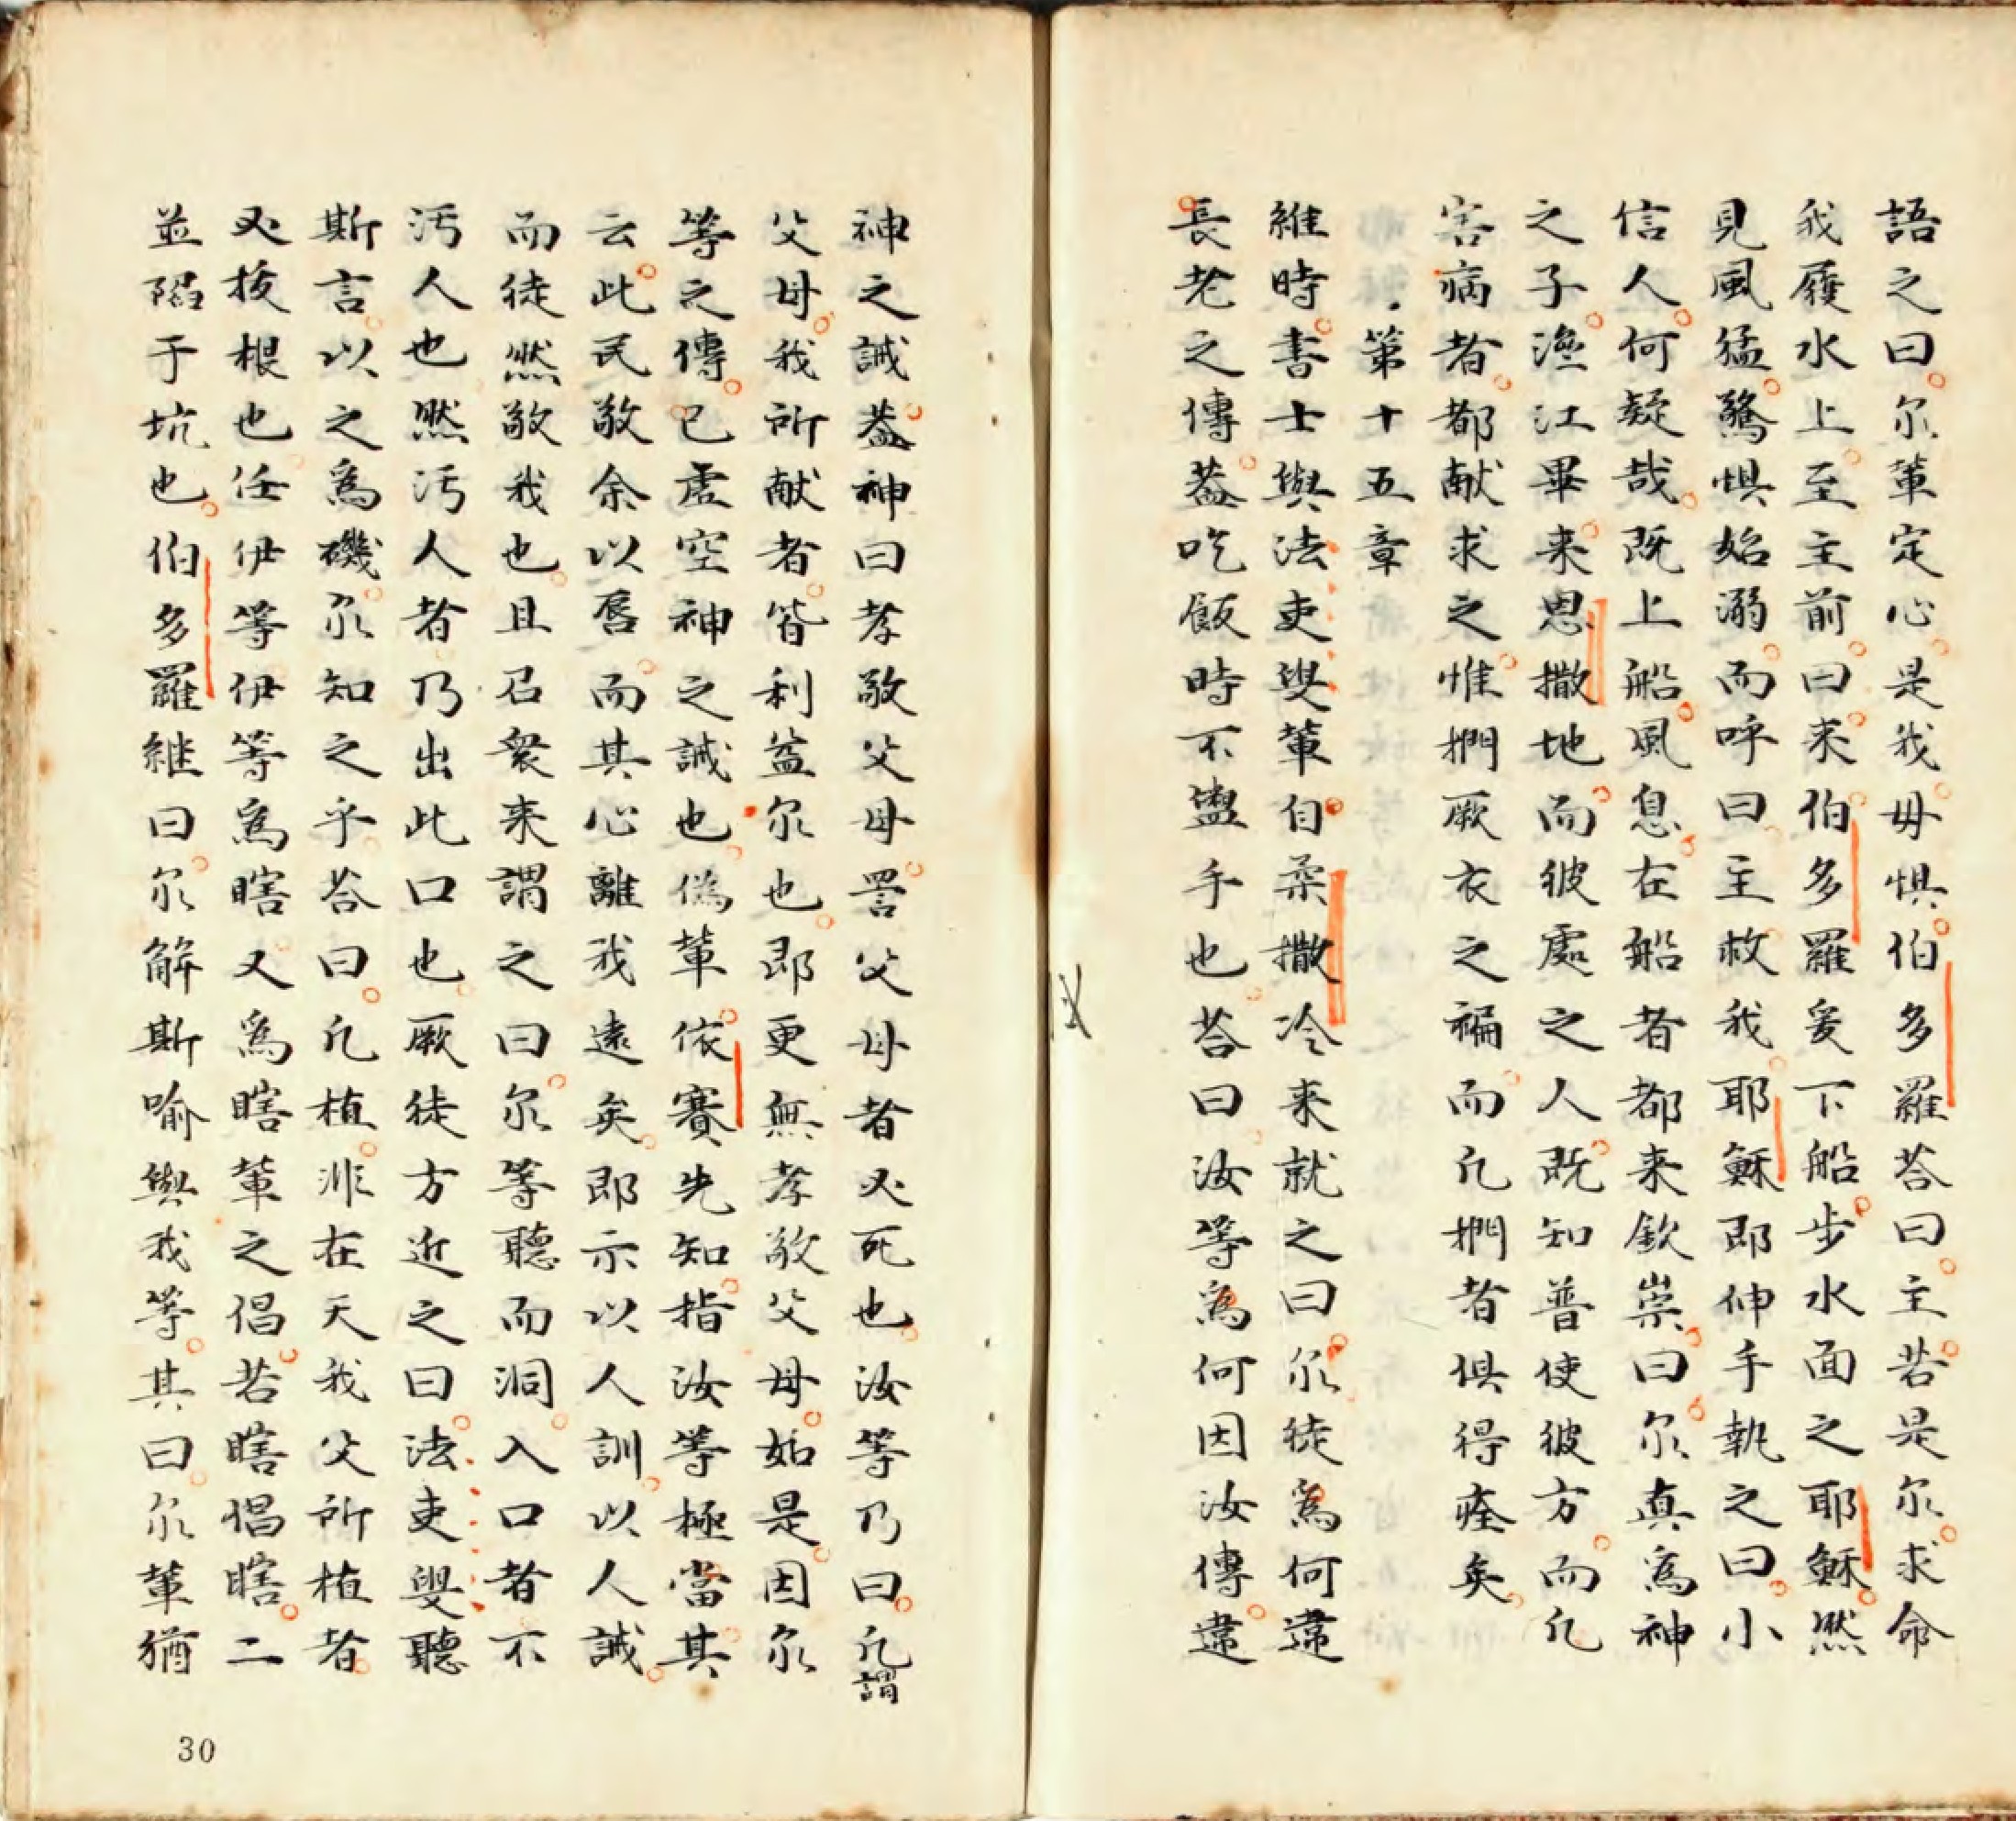 語之曰尔軰定心是我毋惧伯多羅荅曰主若是尔求命
我履水上至主前曰来伯多羅爰下船步水面之耶穌然
見風猛驚惧始溺而呼曰主救我耶穌即伸手執之曰小
信人何疑哉既上船風息在船者都来欽崇曰尔真為神
之子渔江畢来思撒地而彼處之人既知普使彼方而凢
害病者都献求之惟捫厥衣之褊而凢捫者俱得痊矣
第十五章
維時書士與法吏叟軰自柔撒冷来就之曰尔徒為何違
長老之傳葢吃飯時不盥手也荅曰汝等為何因汝傳違
神之誡葢神曰孝敬父母詈父母者必死也汝等乃曰凢謂
父母我所献者皆利益尔也即更無孝敬父母如是因尔
等之傳已虚空神之誡也偽軰依賽先知指汝等極當其
云此民敬余以唇而其心離我遠矣即示以人訓以人誡
而徒然敬我也且召衆来謂之曰尔等聽而洞入口者不
汚人也然汚人者乃出此口也厥徒方近之曰法吏叟聽
斯言以之為磯尔知之乎荅曰凢植非在天我父所植者
必拔根也任伊等伊等為瞎又為瞎軰之倡若瞎倡瞎二
並陷于坑也伯多羅継曰尔解斯喻與我等其曰尔軰猶
30